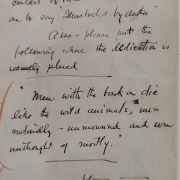 on by say "Illustrated by author"
Also - please put the
following where the dedication is
usually placed
"Men with the bark on die
like the wild animals, un-
naturally - unmourned and even
unthought of mostly."